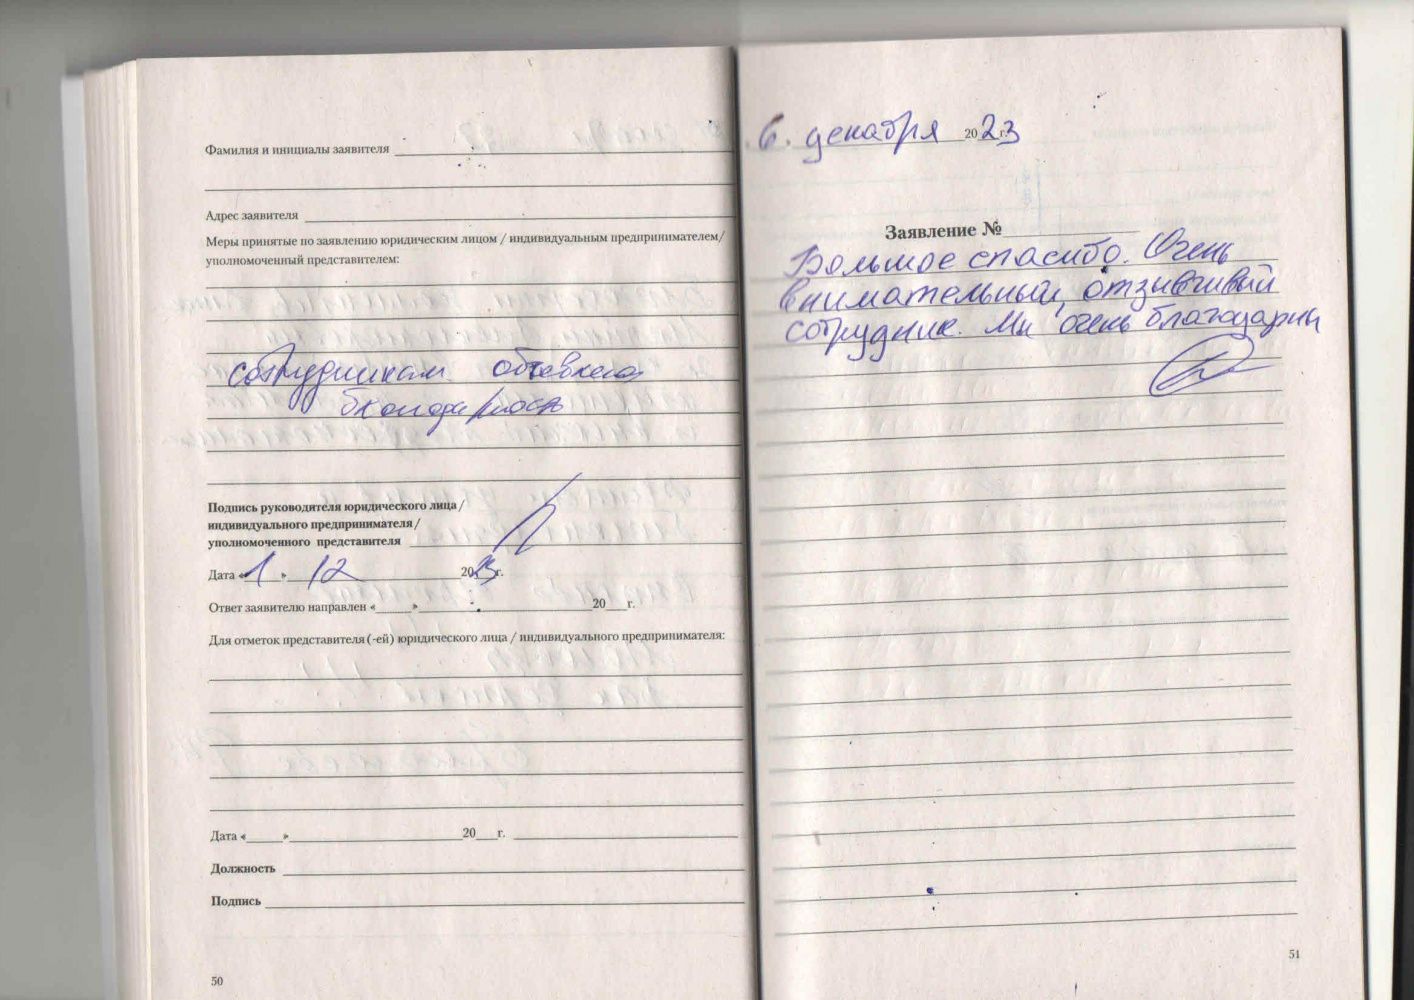 Фамилия и инициалы заявителя
Адрес заявителя
Меры принятые по заявлению юридическим лицом / индивидуальным предпринимателем/
уполномоченный представителем:
сотрудникам объявлена
благодарность
Подпись руководителя юридического лица/
индивидуального предпринимателя/
уполномоченного представителя
Дата «1» 12 2023г.
Ответ заявителю направлен «     » 20   г.
Для отметок представителя (-ей) юридического лица / индивидуального предпринимателя:
Дата «     » 20   г.
Должность
Подпись
50
6. декабря 2023г.
Заявление №
Большое спасибо. Очень
внимательный, отзывчивый
сотрудник. Мы очень благодарны
51